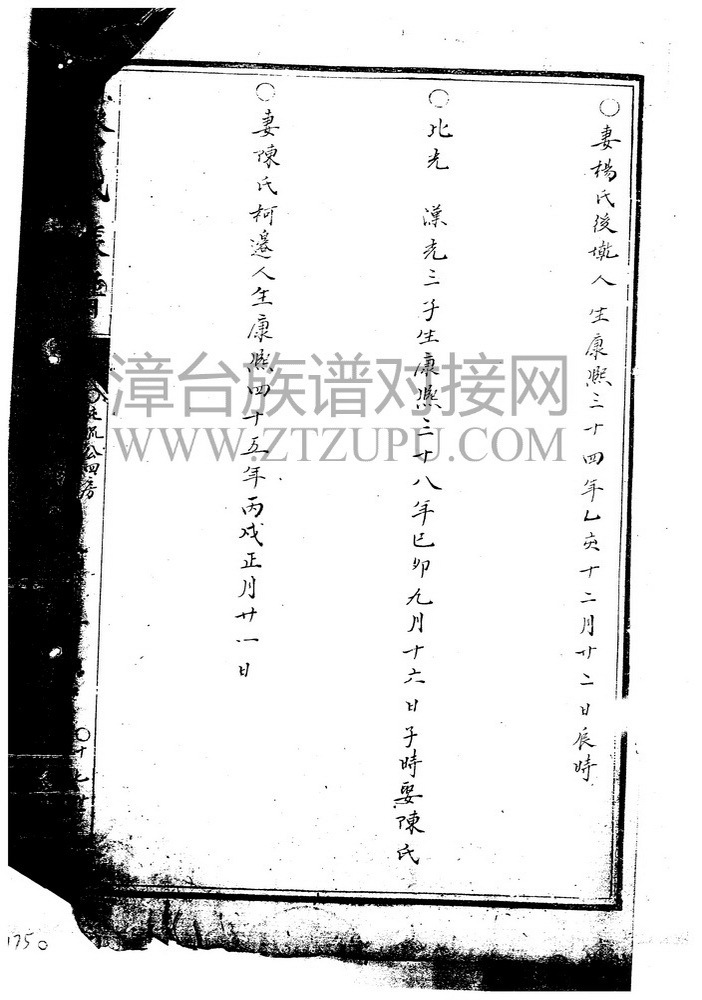 ○妻楊氏後墘人生康熙三十四年乙亥十二月廿二日辰時
○兆光 漢光三子生康熙三十八年己卯九月十六日子時娶陳氏
○妻陳氏柯邊人生康熙四十五年丙戌正月廿一日
公四房
○十七
1750
漳台族谱对接网
WWW.ZTZUPU.COM